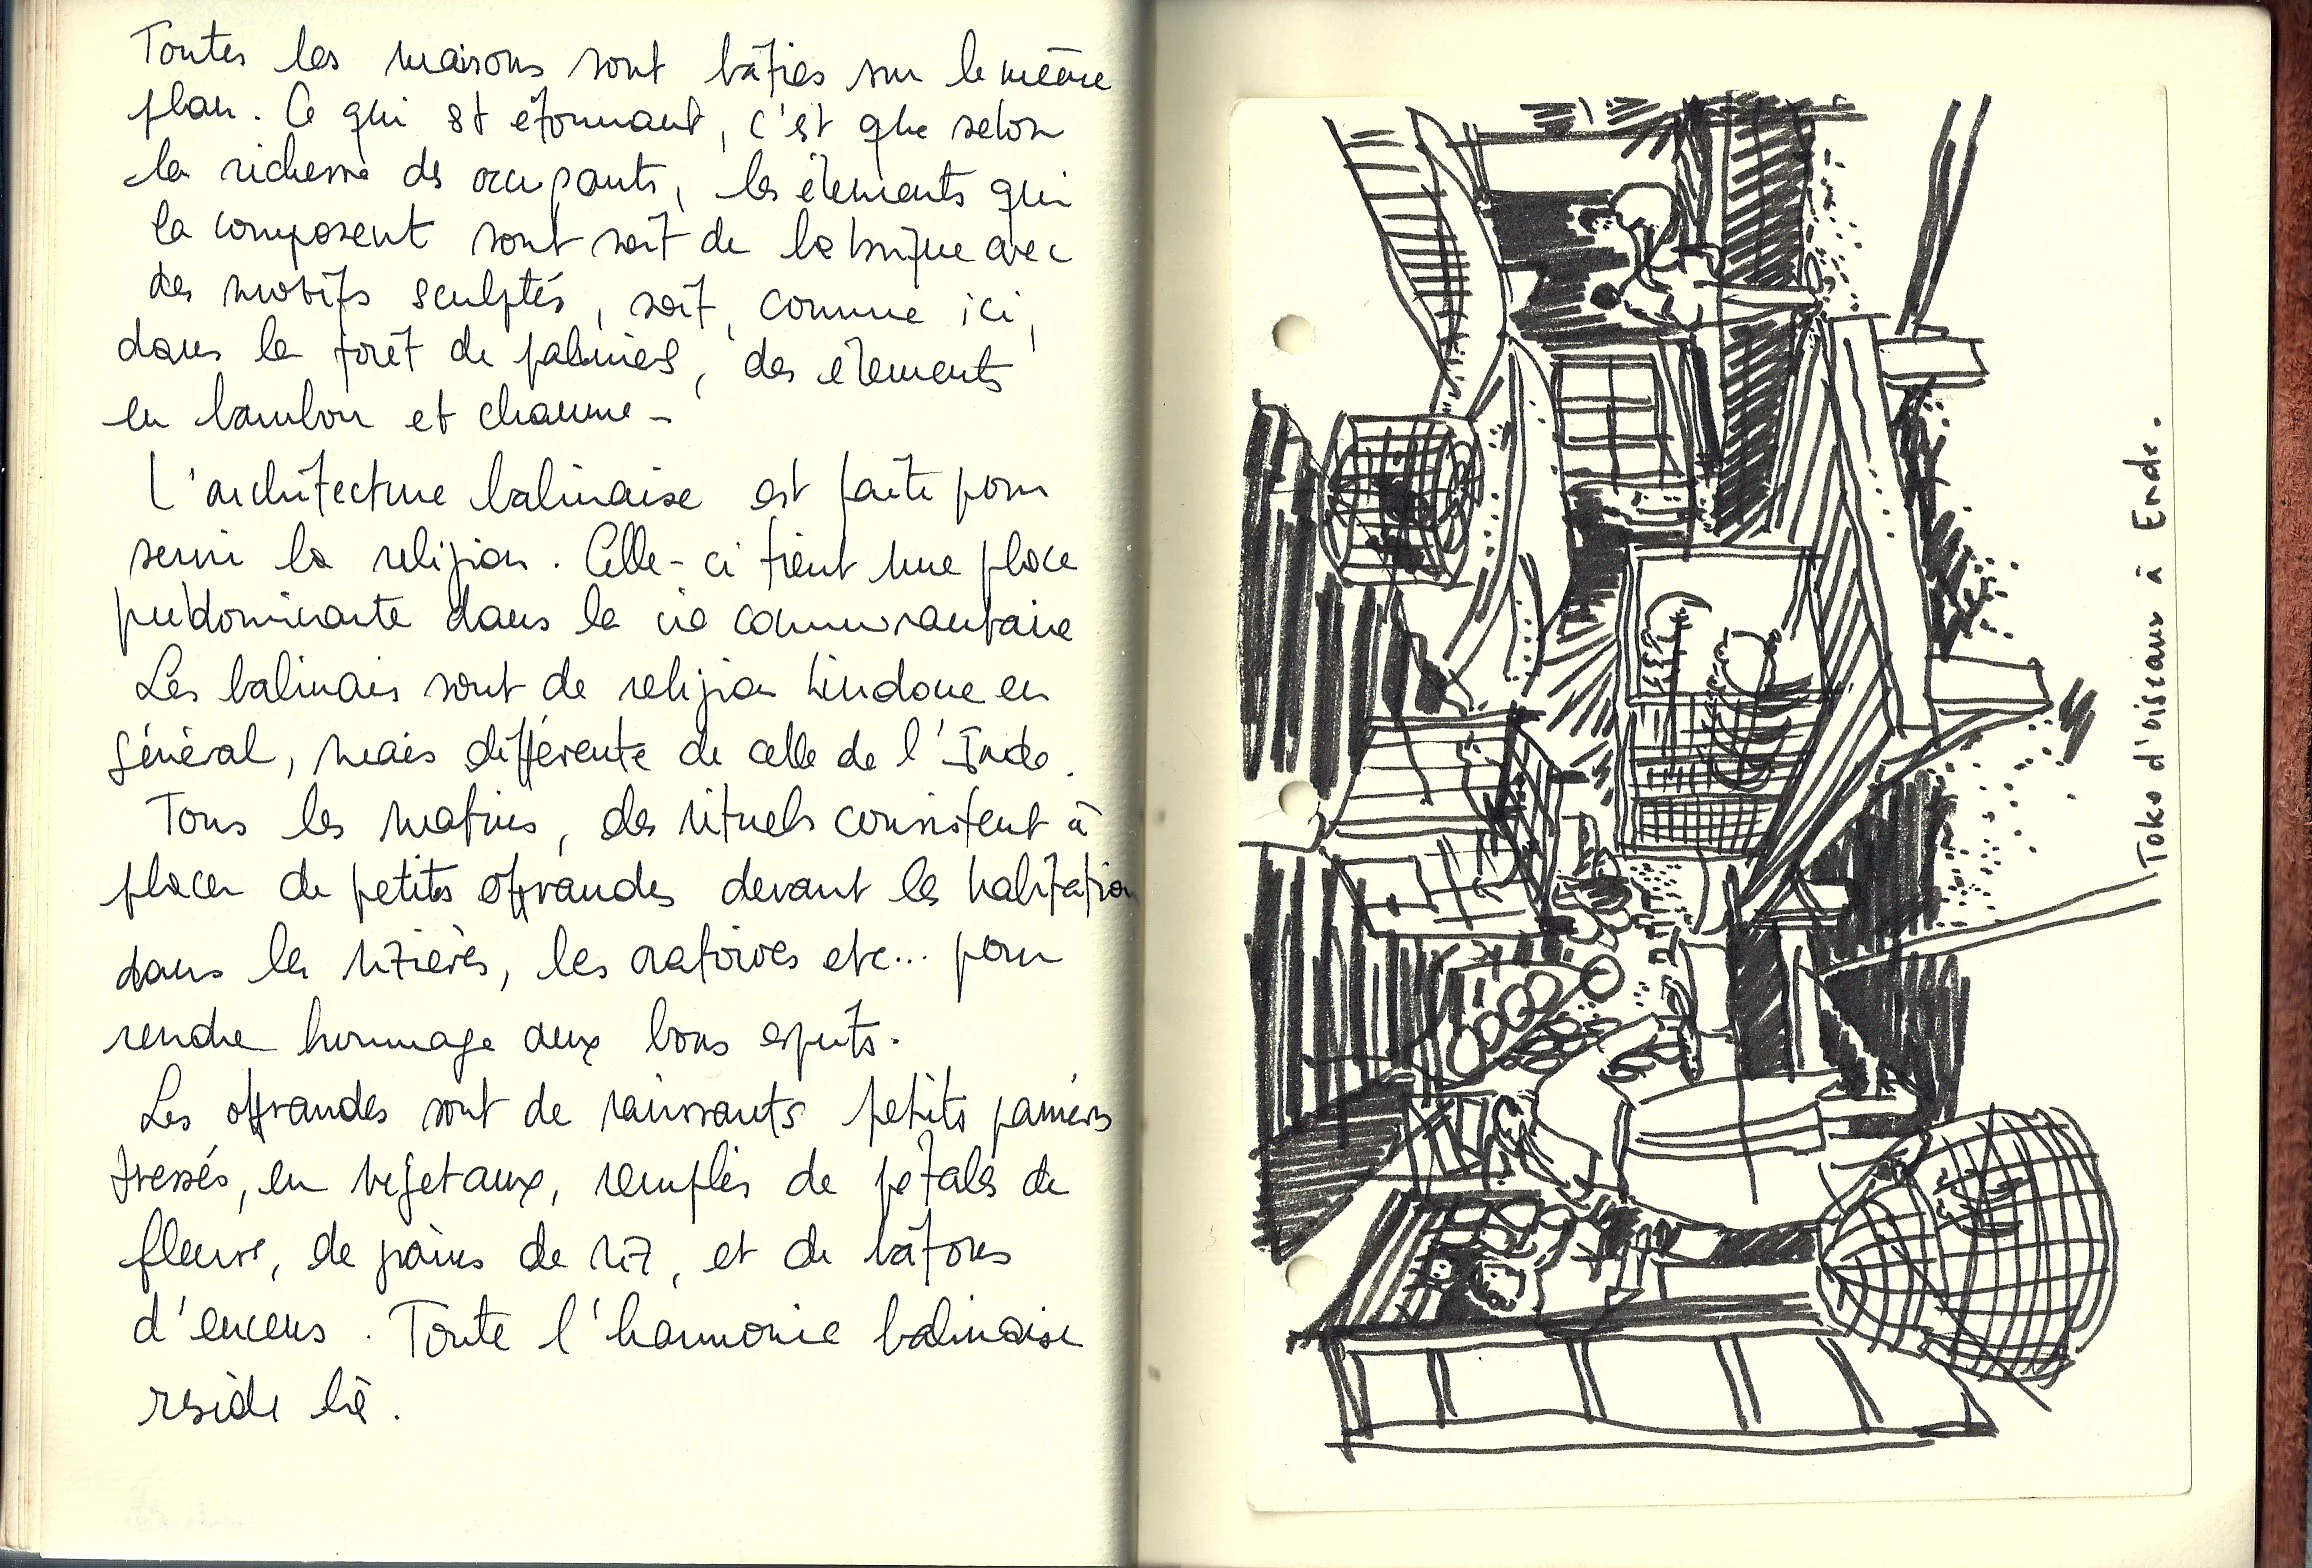 Toutes les maisons sont bâties sur le même
plan. Ce qui est étonnant, c'est que selon
la richesse des occupants, les élements qui
la composent sont soit de la brique avec
des motifs sculptés, soit, comme ici,
dans la forêt de palmiers, des élements
en bambou et chaume -
L'architecture balinaise est faite pour
servir la religion. Celle-ci tient une place
prédominante dans la vie communautaire
Les balinais sont de religion hindoue en
général, mais différente de celle de l'Inde.
Tous les matins, des rituels consistent à
placer de petites offrandes devant les habitation
dans les rizières, les oratoires etc... pour
rendre hommage aux bons esprits.
Les offrandes sont de ravissants petits paniers
tressés, en végetaux, remplis de pétales de
fleurs, de grains de riz, et de bâtons
d'encens. Toute l'harmonie balinaise
réside là.
Toko d'oiseaux à Ende.